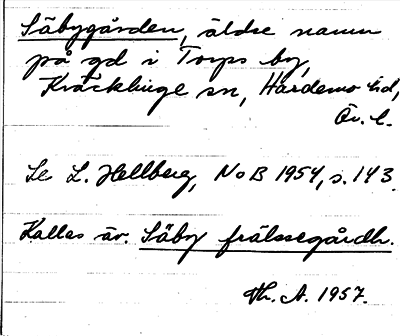 Säbygården, äldre namn
på gd i Torps by,
Kräcklinge sn, Hardemo hd,
Ör. l.
Se L. Hellberg, NoB 1954, s. 143.
Kallas äv. Säby frälssegårdh.
Th. A. 1957.